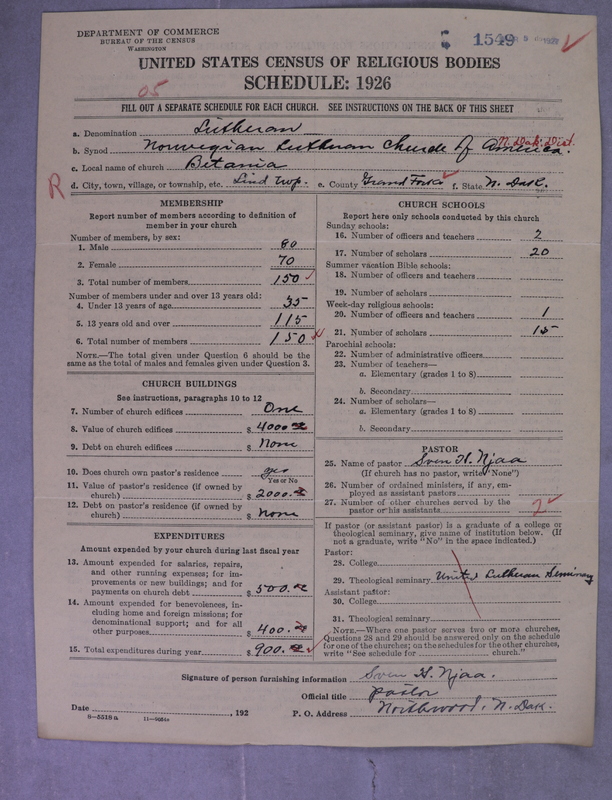 DEPARTMENT OF COMMERCE
BUREAU OF THE CENSUS
WASHINGTON
1549
UNITED STATES CENSUS OF RELIGIOUS BODIES
SCHEDULE: 1926
05
FILL OUT A SEPARATE SCHEDULE FOR EACH CHURCH. SEE INSTRUCTIONS ON THE BACK OF THIS SHEET
a. Denomination Lutheran
N. Dak. Dist.
b. Synod Norwegian Lutheran Church of America.
c. Local name of church Betania
R
d. City, town, village, or township, etc. Lind twp. e. County Grand Forks f. State N. Dak.
MEMBERSHIP
Report number of members according to definition of member in your church
Number of members, by sex:
1. Male 80
2. Female 70
3. Total number of members 150
Number of members under and over 13 years old:
4. Under 13 years of age 35
5. 13 years old and over 115
6. Total number of members 150
NOTE.—The total given under Question 6 should be the same as the total of males and females given under Question 3.
CHURCH BUILDINGS
See instructions, paragraphs 10 to 12
7. Number of church edifices One
8. Value of church edifices $ 4000
9. Debt on church edifices $ None
10. Does church own pastor's residence yes
Yes or No
11. Value of pastor's residence (if owned by church) $ 2000.
12. Debt on pastor's residence (if owned by church) $ None
EXPENDITURES
Amount expended by your church during last fiscal year
13. Amount expended for salaries, repairs, and other running expenses; for improvements or new buildings; and for payments on church debt $ 500.
14. Amount expended for benevolences, including home and foreign missions; for denominational support; and for all other purposes $ 400.
15. Total expenditures during year $ 900.
CHURCH SCHOOLS
Report here only schools conducted by this church
Sunday schools:
16. Number of officers and teachers 2
17. Number of scholars 20
Summer vacation Bible schools:
18. Number of officers and teachers
19. Number of scholars
Week-day religious schools:
20. Number of officers and teachers 1
21. Number of scholars 15
Parochial schools:
22. Number of administrative officers
23. Number of teachers—
a. Elementary (grades 1 to 8)
b. Secondary
24. Number of scholars—
a. Elementary (grades 1 to 8)
b. Secondary
PASTOR
25. Name of pastor Sven H. Njaa
(If church has no pastor, write "None")
26. Number of ordained ministers, if any, employed as assistant pastors
27. Number of other churches served by the pastor or his assistants 2
If pastor (or assistant pastor) is a graduate of a college or theological seminary, give name of institution below. (If not a graduate, write "No" in the space indicated.)
Pastor:
28. College
29. Theological seminary United Lutheran Seminary
Assistant pastor:
30. College
31. Theological seminary
NOTE.—Where one pastor serves two or more churches, Questions 28 and 29 should be answered only on the schedule for one of the churches; on the schedules for the other churches, write "See schedule for church."
Signature of person furnishing information Sven H. Njaa.
Official title Pastor
Date , 192 P. O. Address Northwood, N. Dak.
8—5518 a